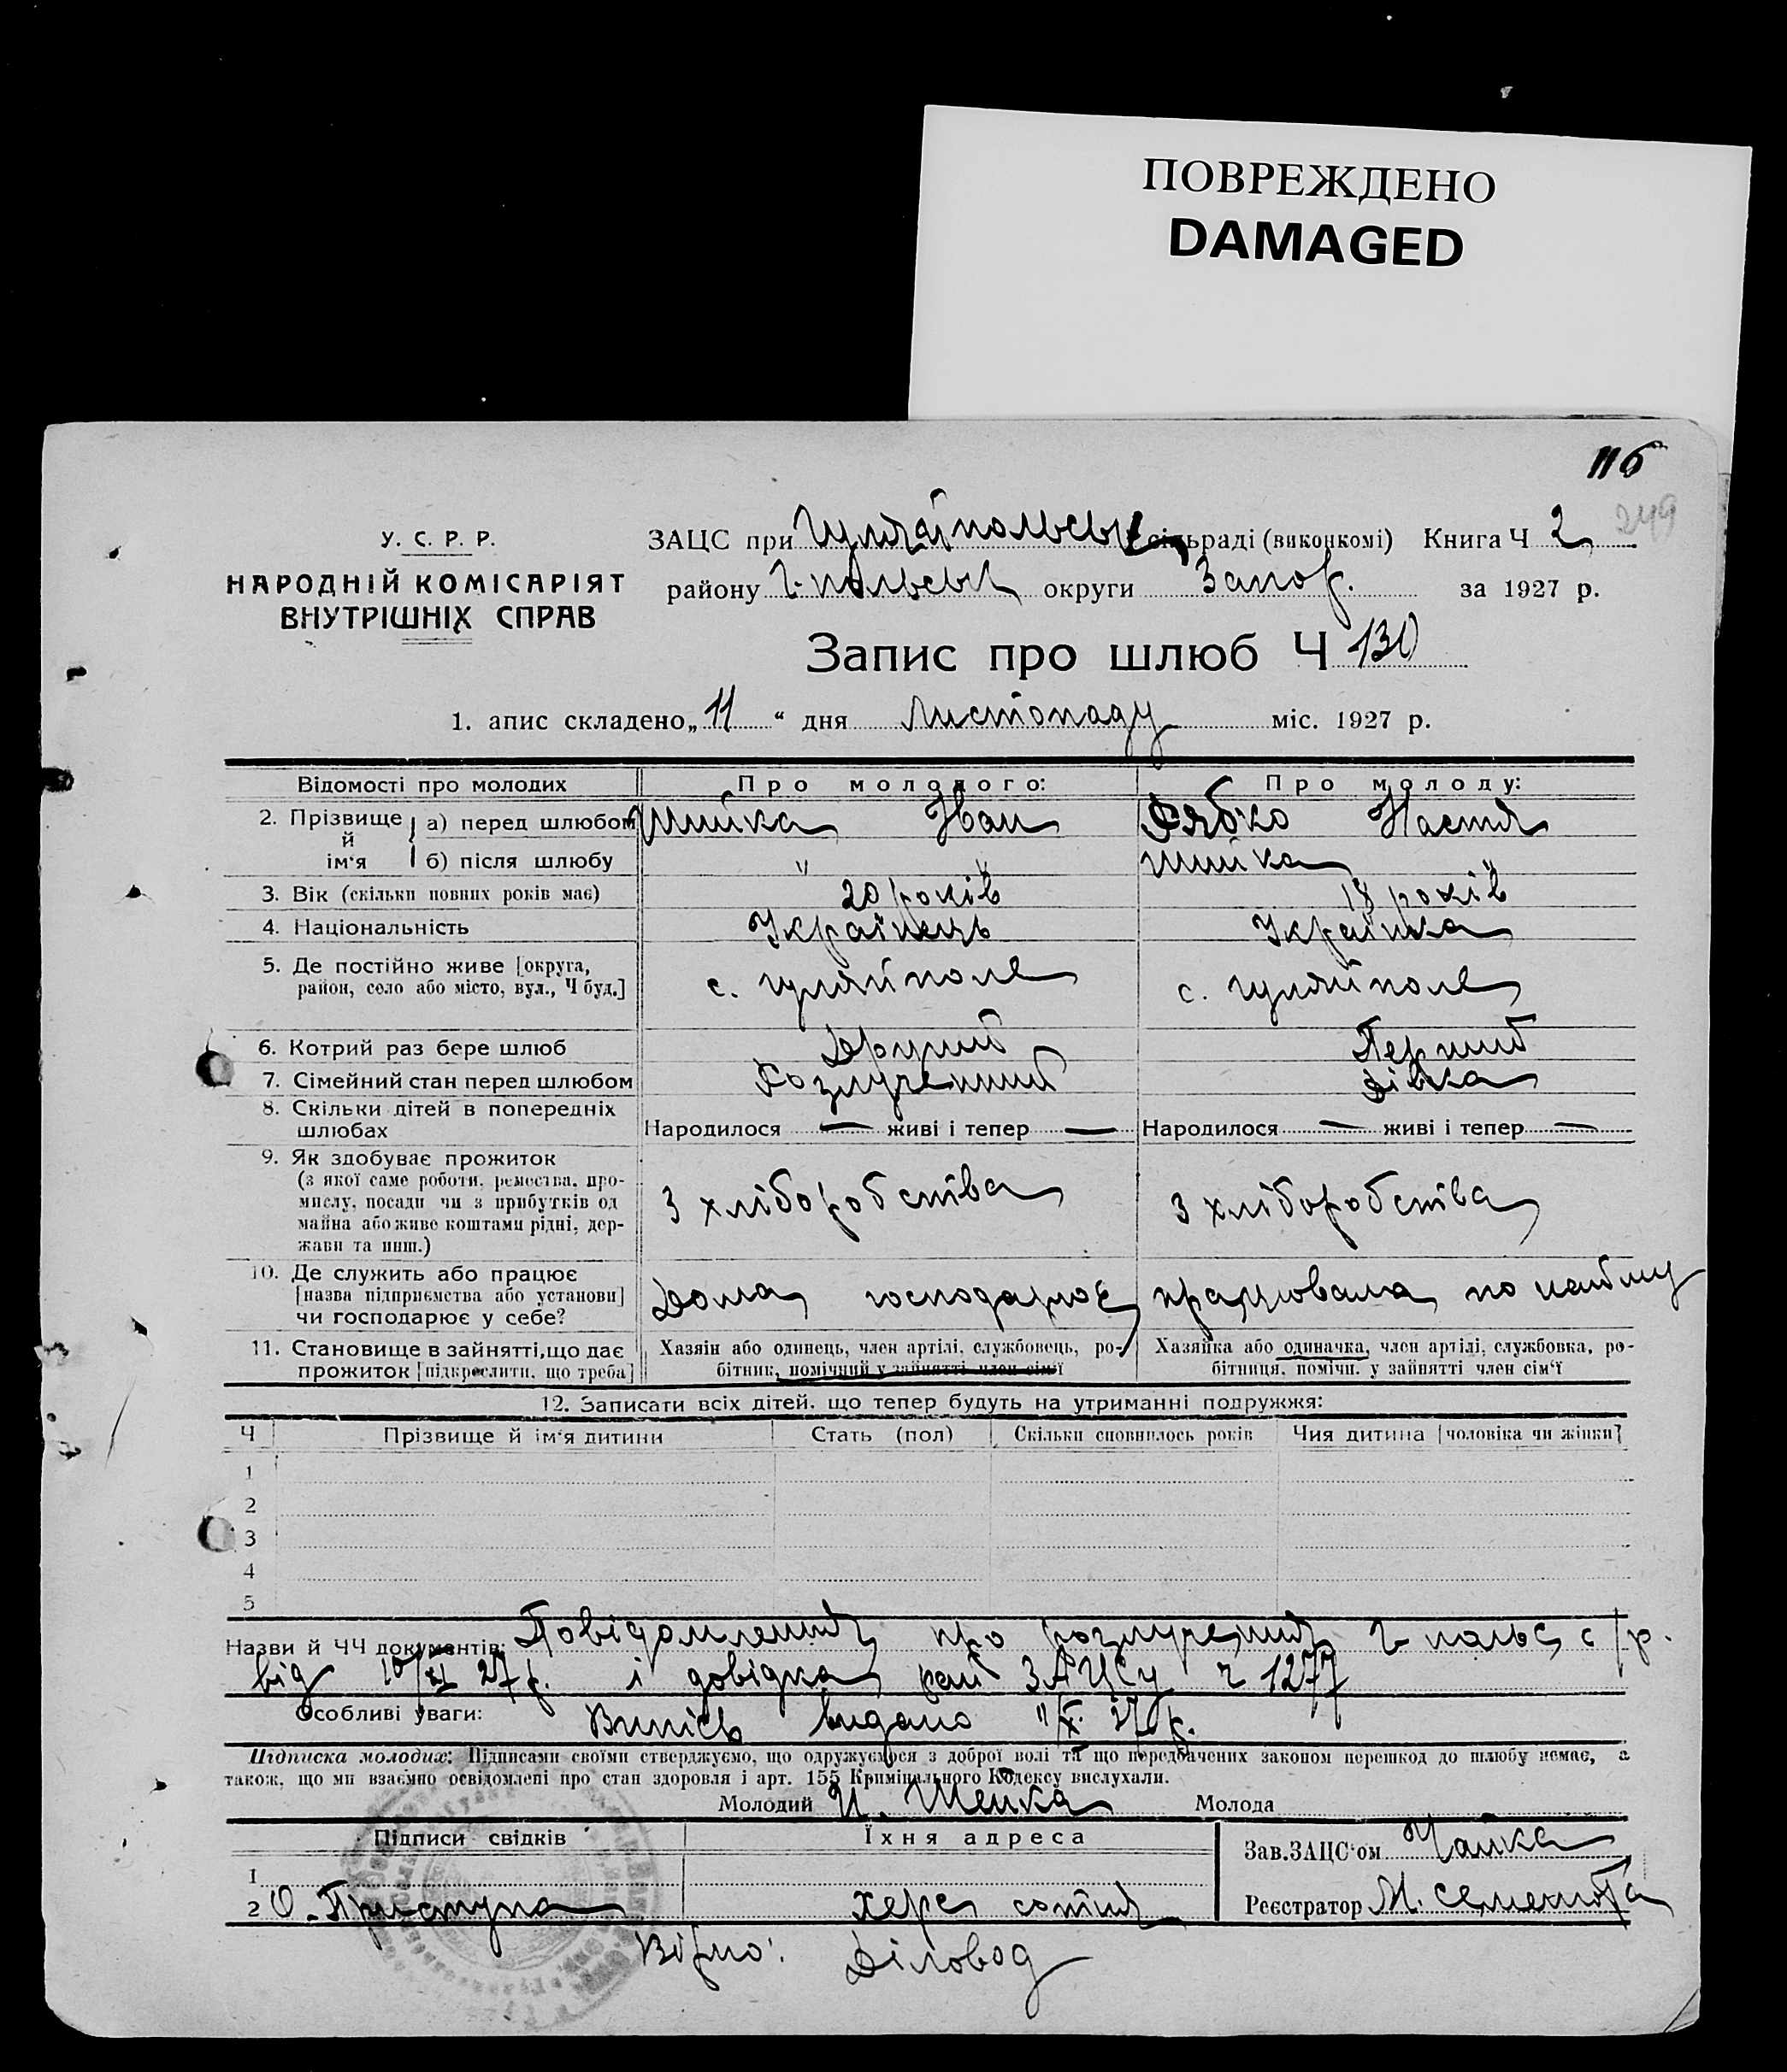 ПОВРЕЖДЕНО
DAMAGED
116
249
У. С. Р. Р.
НАРОДНІЙ КОМІСАРІЯТ
ВНУТРІШНІХ СПРАВ
ЗАЦС при Гуляйпольськ сільраді (виконкомі) Книга Ч 2
району Г-польськ округи Запор. за 1927 р.
Запис про шлюб Ч 130
1. апис складено „ 11 “ дня Листопаду міс. 1927 р.
Відомості про молодих Про молодого: Про молоду:
2. Прізвище й ім'я а) перед шлюбом Шийка Іван Рябко Настя
б) після шлюбу " " Шийка
3. Вік (скільки повних років має) 20 років 18 років
4. Національність Українець Українка
5. Де постійно живе [округа,
район, село або місто, вул., Ч буд.] с. Гуляйполе с. Гуляйполе
6. Котрий раз бере шлюб Другий Перший
7. Сімейний стан перед шлюбом Розлучений Дівка
8. Скільки дітей в попередніх
шлюбах Народилося — живі і тепер — Народилося — живі і тепер —
9. Як здобуває прожиток
(з якої саме роботи, ремества, про-
мислу, посади чи з прибутків од
майна або живе коштами рідні, дер-
жави та инш.) З хліборобства З хліборобства
10. Де служить або працює
[назва підприємства або установи]
чи господарює у себе? Дома господарює працювала по найму
11. Становище в зайнятті, що дає Хазяїн або одинець, член артілі, службовець, ро- Хазяйка або одиначка, член артілі, службовка, ро-
прожиток [підкреслити, що треба] бітник, помічний у зайнятті член сім'ї бітниця, помічн. у зайнятті член сім'ї
12. Записати всіх дітей, що тепер будуть на утриманні подружжя:
Ч Прізвище й ім'я дитини Стать (пол) Скільки сповнилось років Чия дитина [чоловіка чи жінки]
1
2
3
4
5
Назви й ЧЧ документів: Повідомлення про розлучення Г-польс с/р.
від 10/XI 27 р. і довідка рай ЗАЦСу ч 1277
Особливі уваги: Випісь видано 11/XI. 27 р.
Підписка молодих: Підписами своїми стверджуємо, що одружуємося з доброї волі та що передбачених законом перешкод до шлюбу немає, а
також, що ми взаємно освідомлені про стан здоровля і арт. 155 Кримінального Кодексу вислухали.
Молодий И. Шейка Молода
Підписи свідків Їхня адреса Зав. ЗАЦС'ом Чайка
1
2 О. Приступа херс сотня Реєстратор М. Семенюта
Вірно: Діловод